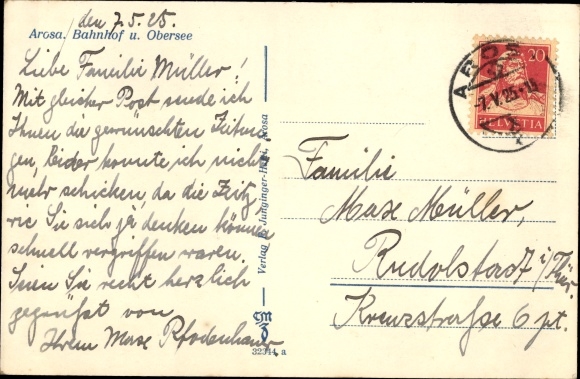 den 7.5.25.
Arosa. Bahnhof u. Obersee
Liebe Familie Müller!
Mit gleicher Post sende ich
Ihnen die gewünschten Zeitun-
gen, leider konnte ich nicht
mehr schicken, da die Zeitg,
wie Sie sich ja denken können
schnell vergriffen waren.
Seien Sie recht herzlich
gegrüßt von
Ihrem Max
Verlag Arosa
32344 a
AROSA
7.V.25
20
HELVETIA
Familie
Max Müller,
Rudolstadt i/Thür.
Kreuzstraße 6 pt.